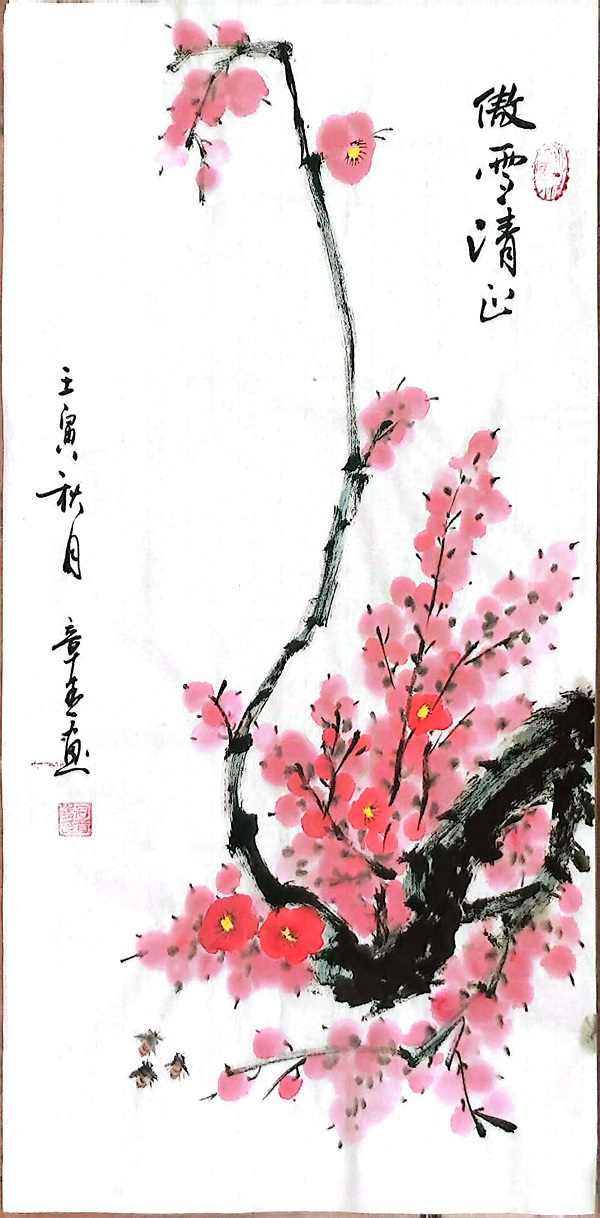 傲雪清正
壬寅秋月 章 画